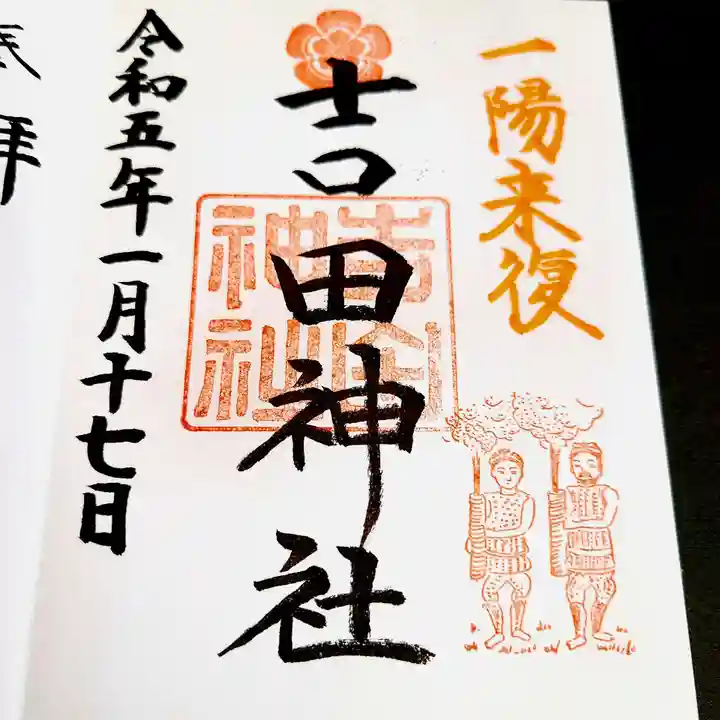 一陽来復
吉田神社
吉田神社
令和五年一月十七日
拝